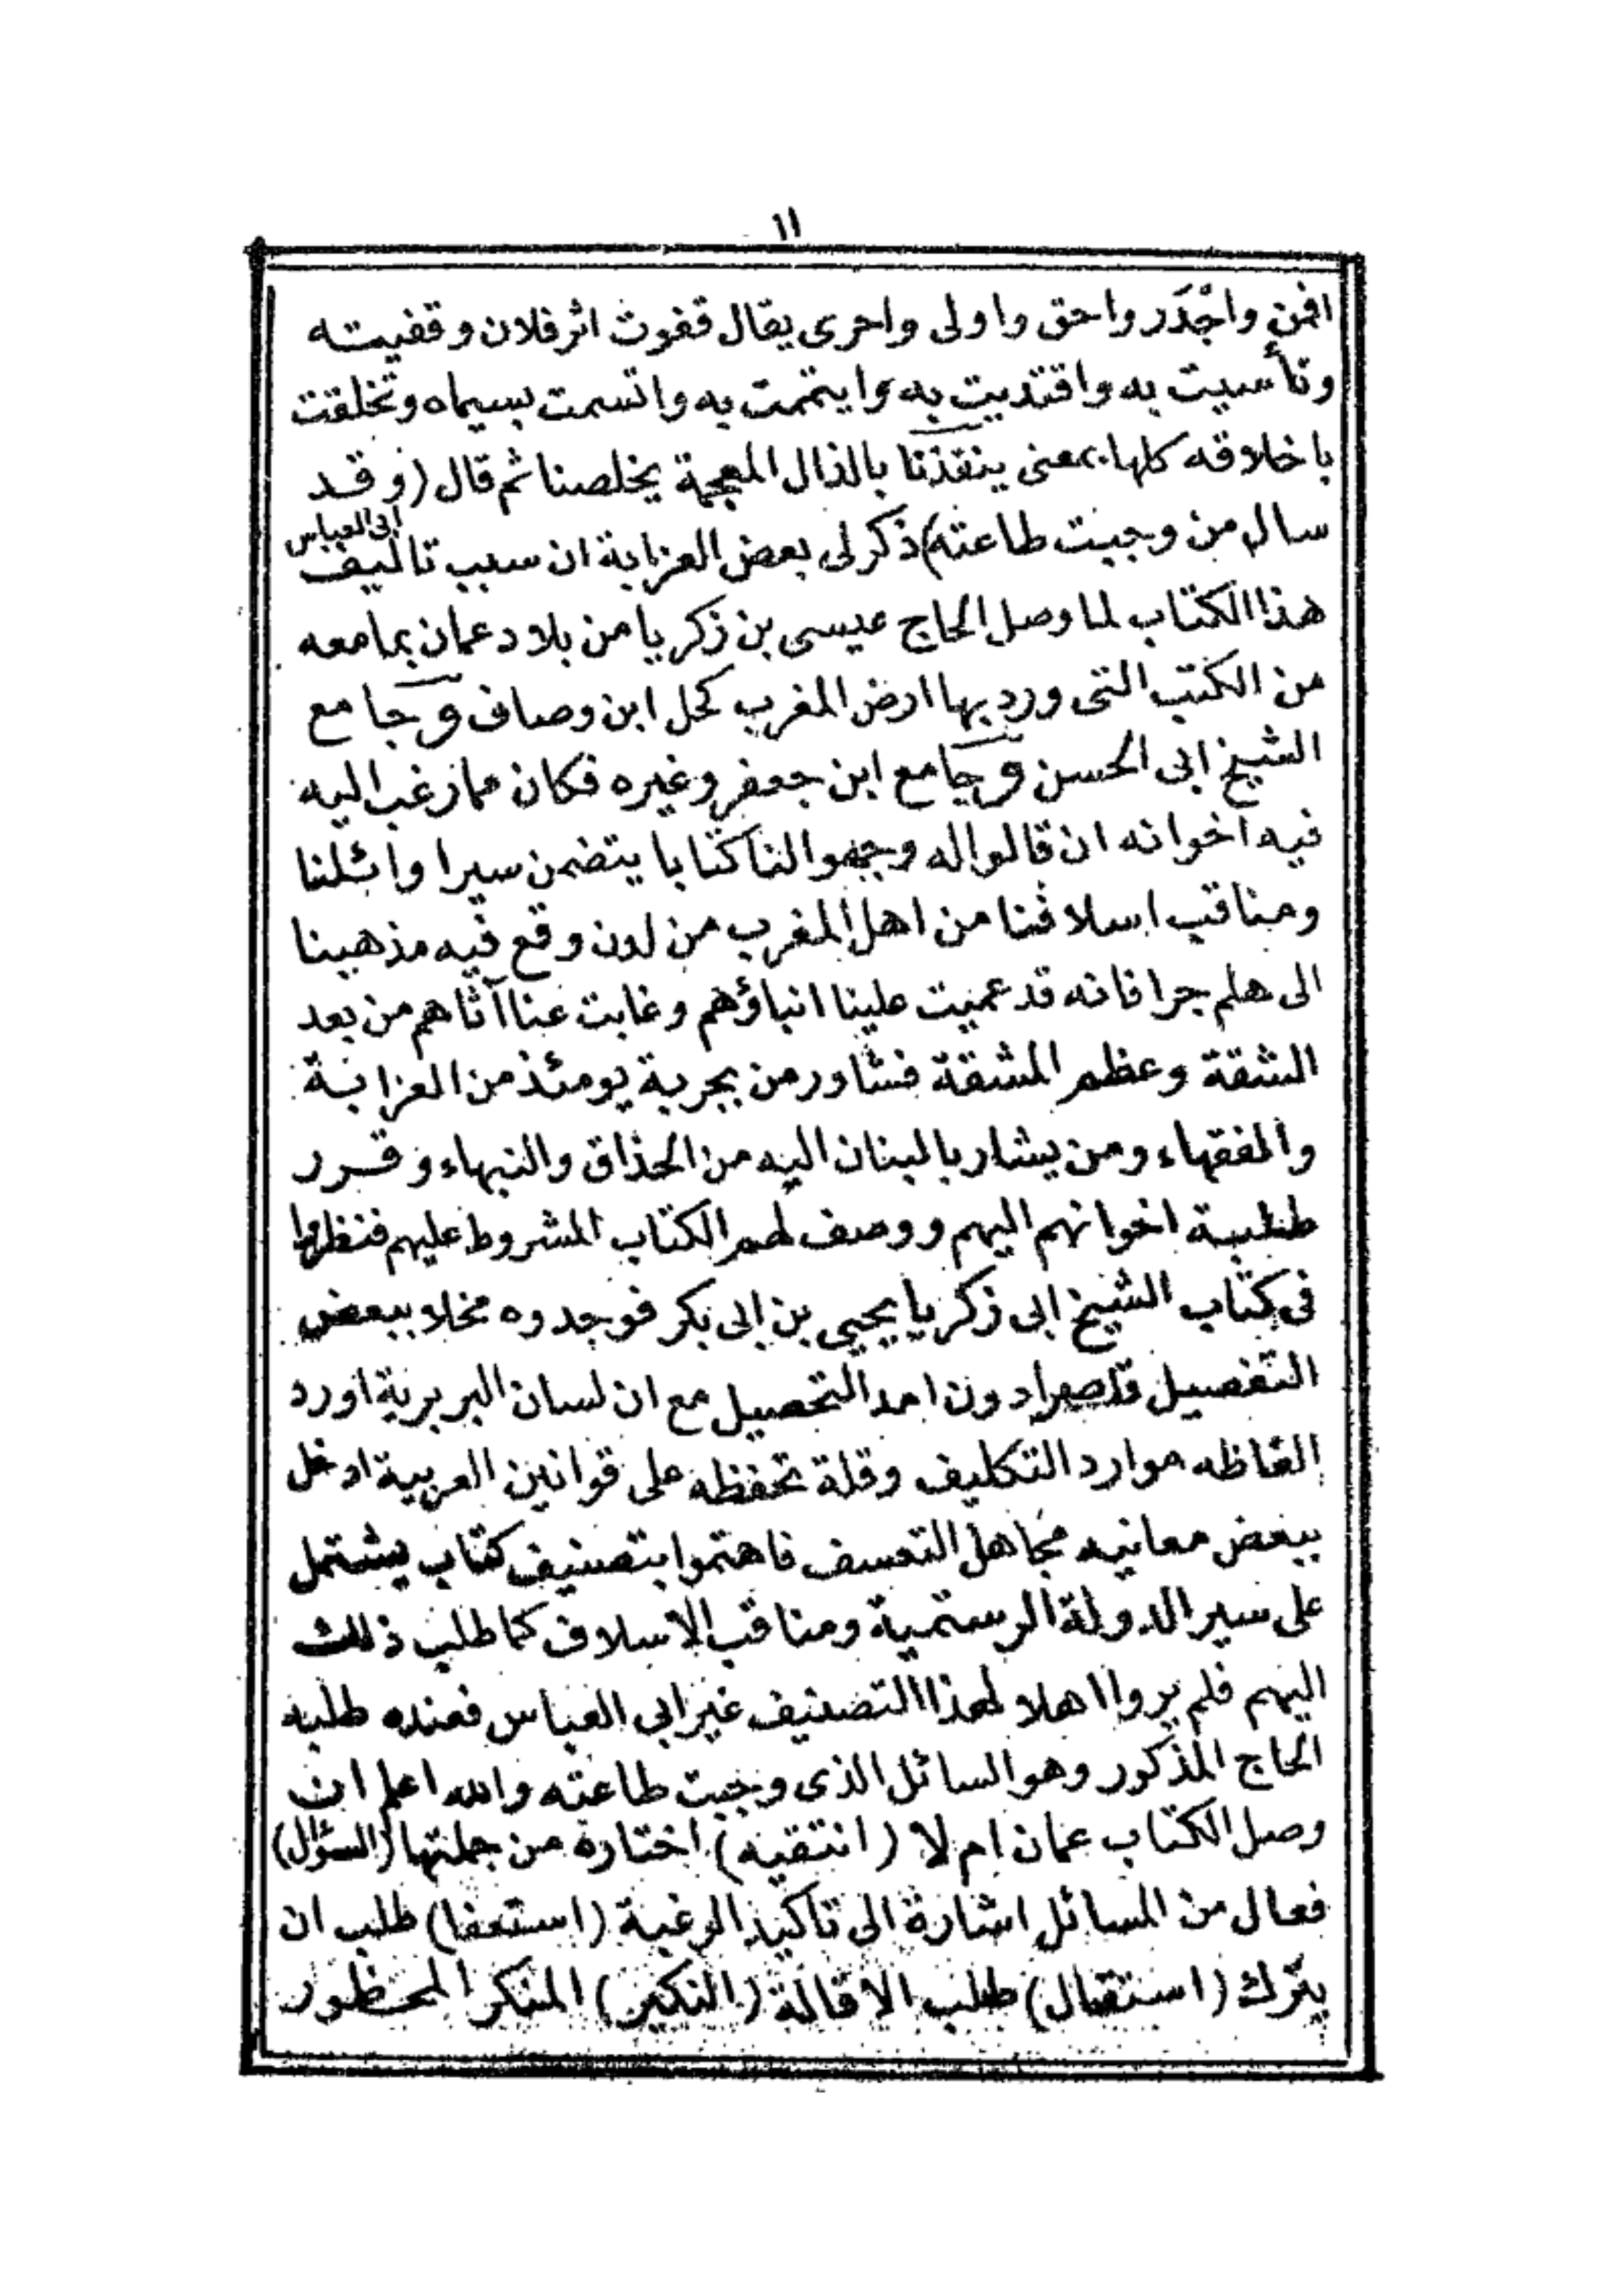 ١١
اقمن واجْدَر واحق واولى واحرى يقال قفوت اثر فلان وقفيته
وتأسيت به واقتديت به وايتممت به واتسمت بسيماه وتخلقت
باخلاقه كلها بمعنى ينقذنا بالذال المعجمة يخلصنا ثم قال (وقد
سال من وجبت طاعته) ذكر لى بعض العزابة ان سبب تاليف ابى العباس
هذا الكتاب لما وصل الحاج عيسى بن زكريا من بلاد عمان بما معه
من الكتب التى ورد بها ارض المغرب كحل ابن وصاف وجامع
الشيخ ابى الحسن وجامع ابن جعفر وغيره فكان مما رغب اليه
فيه اخوانه ان قالوا له وجهوا لنا كتابا يتضمن سير اوائلنا
ومناقب اسلافنا من اهل المغرب من لدن وقع فيه مذهبنا
الى هلم جرا فانه قد عميت علينا انباؤهم وغابت عنا آثاهم من بعد
الشقة وعظم المشقة فشاور من بجربة يومئذ من العزابة
والفقهاء ومن يشار بالبنان اليه من الحذاق والنبهاء وقرر
طلبة اخوانهم اليهم ووصف لهم الكتاب المشروط عليهم فنظروا
فى كتاب الشيخ ابى زكريا يحيى بن ابى بكر فوجدوه مخلا ببعض
التفصيل قاصرا دون امد التحصيل مع ان لسان البربرية اورد
الفاظه موارد التكليف وقلة تحفظه على قوانين العربية ادخل
ببعض معانيه مجاهل التعسف فاهتموا بتصنيف كتاب يشتمل
على سير الدولة الرستمية ومناقب الاسلاف كما طلب ذلك
اليهم فلم يروا اهلا لهذا التصنيف غير ابى العباس فعنده طلبه
الحاج المذكور وهو السائل الذى وجبت طاعته والله اعلم ان
وصل الكتاب عمان ام لا (انتقيه) اختاره من جملتها (السؤال)
فعال من المسائل اشارة الى تاكيد الرغبة (استعفا) طلب ان
يترك (استقال) طلب الاقالة (النكير) المنكر المحظور